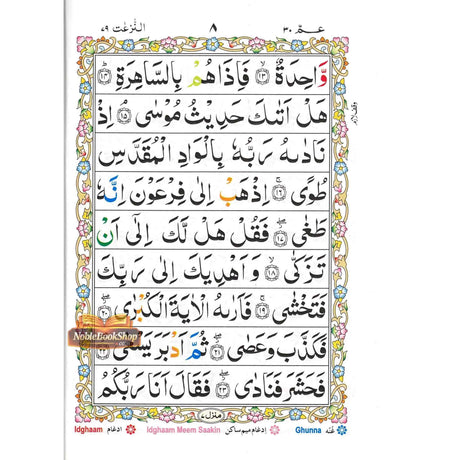 عـمّ ٣٠ ٨ النّٰزعٰت ٧٩
وَّاحِدَةٌ ۙ﴿۱۳﴾ فَاِذَا هُمْ بِالسَّاهِرَةِ ؕ﴿۱۴﴾
هَلْ اَتٰىكَ حَدِيْثُ مُوْسٰى ۘ﴿۱۵﴾ اِذْ
نَادٰىهُ رَبُّهٗ بِالْوَادِ الْمُقَدَّسِ
طُوًى ۚ﴿۱۶﴾ اِذْهَبْ اِلٰى فِرْعَوْنَ اِنَّهٗ
طَغٰى ۖ﴿۱۷﴾ فَقُلْ هَلْ لَّكَ اِلٰٓى اَنْ
تَزَكّٰى ۙ﴿۱۸﴾ وَاَهْدِيَكَ اِلٰى رَبِّكَ
فَتَخْشٰى ۚ﴿۱۹﴾ فَاَرٰىهُ الْاٰيَةَ الْكُبْرٰى ۖ﴿۲۰﴾
فَكَذَّبَ وَعَصٰى ۖ﴿۲۱﴾ ثُمَّ اَدْبَرَ يَسْعٰى
فَحَشَرَ فَنَادٰى ۖ﴿۲۳﴾ فَقَالَ اَنَا رَبُّكُمُ
منزل ٧
NobleBookShop
Idghaam ادغام Idghaam Meem Saakin ادغام میم ساکن Ghunna غنّہ